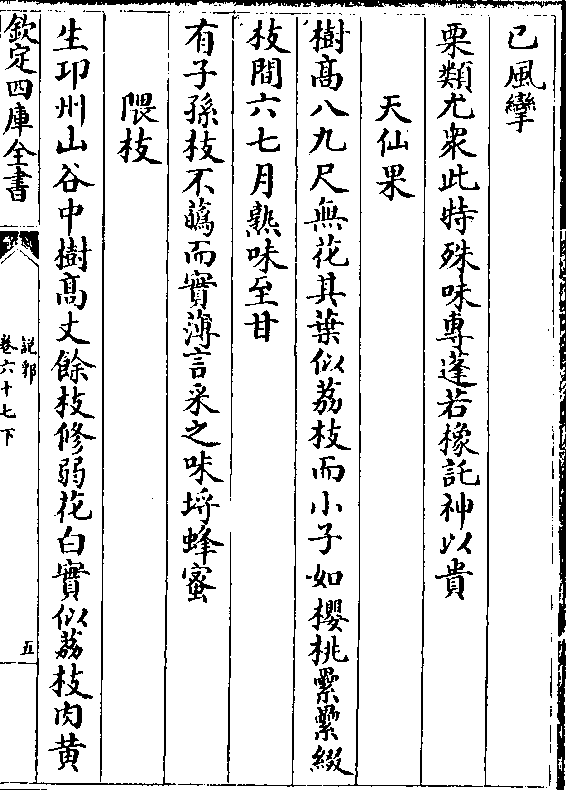 已風攣
栗類尤衆此特殊味專蓬若橡託神以貴
天仙果
樹髙八九尺無花其葉似荔枝而小子如櫻桃纍纍綴
枝間六七月熟味至甘
有子孫枝不蘤而實薄言采之味埒蜂蜜
隈枝
生邛州山谷中樹髙丈餘枝修弱花白實似荔枝肉黄
欽定四庫全書
說郛
卷六十七下
五